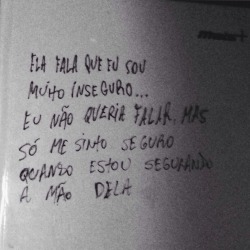 ELA FALA QUE EU SOU
MUITO INSEGURO...
EU NÃO QUERIA FALAR, MAS
SÓ ME SINTO SEGURO
QUANDO ESTOU SEGURANDO
A MÃO DELA